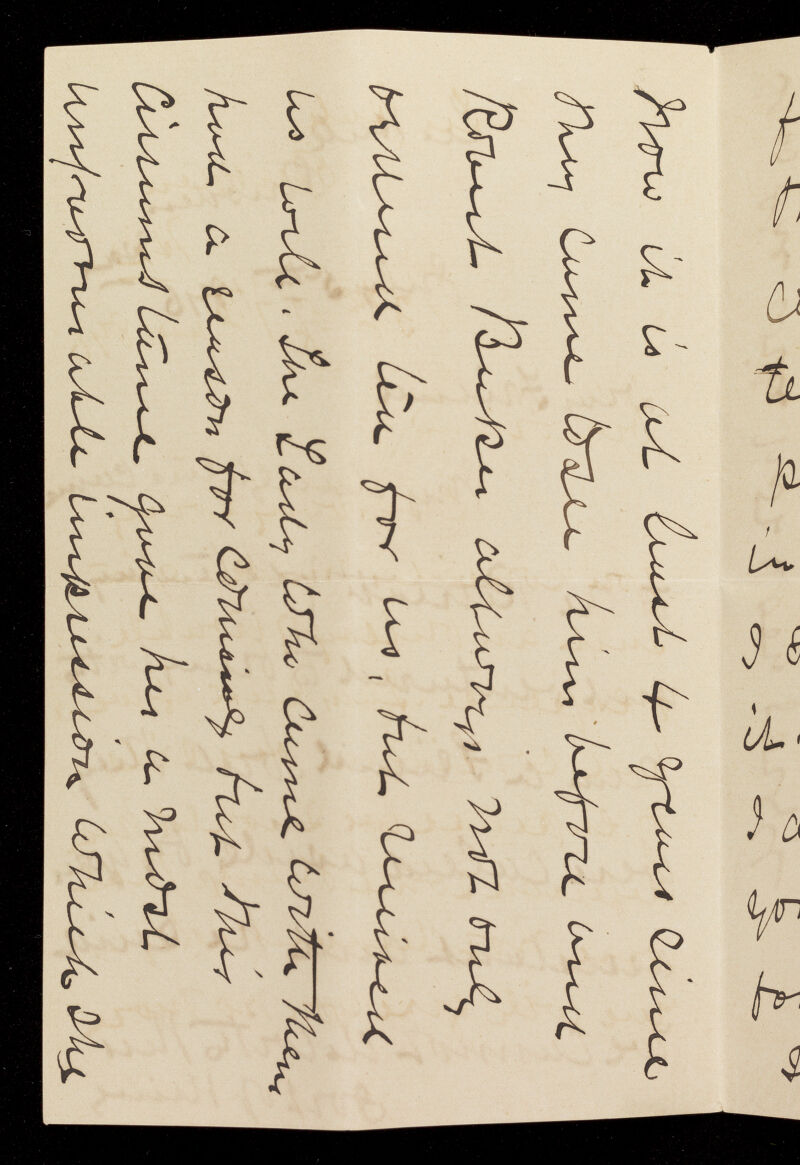 Now it is at least 4 years since
they came to see him before and
Robert Barker always not only
ordered tea for us, but received
us well. The Lady who came with them
had a reason for coming but this
circumstance gave her a most
unfavourable impression which she